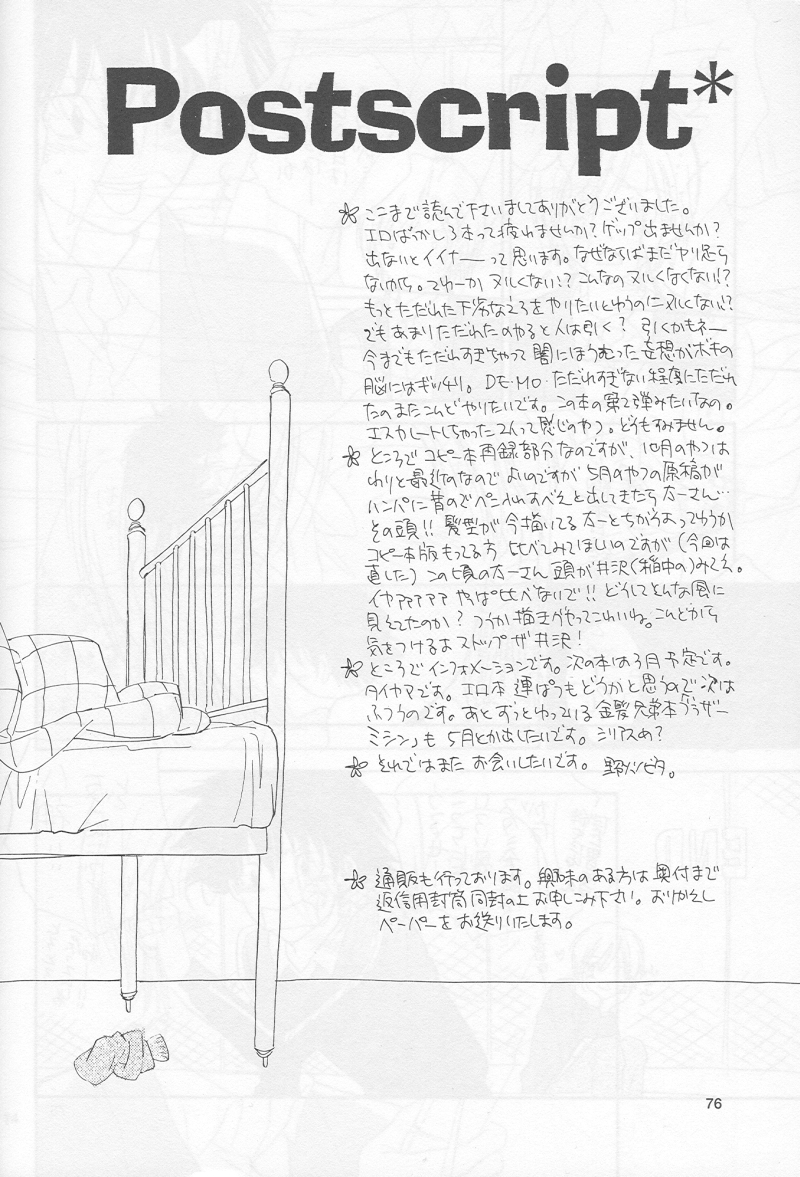 Postscript*
ここまで読んで下さいましてありがとうございました。
エロばっかしる本って疲れませんか?ゲップ出ませんか?
出ないとイイナーって思います。なぜならばまだヤリ足ら
ないから。てゆーかヌルくない!?こんなのヌルくなくない!?
もっとただれた下劣なえろをやりたいとゆうのにヌルくない!?
でもあまりただれたのやると人は引く?引くかもネー
今までもただれすぎちゃって闇にほうむった妄想がボキの
脳にはギッチリ。DE・MO・ただれすぎない程度にただれ
たのまたこんどやりたいです。この本の第2弾みたいなの。
エスカレートしちゃった2人って感じのやつ。どうもすみません。
ところでコピー本再録部分なのですが、10月のやつは
わりと最近のなのでよいのですが5月のやつの原稿が
ハンパに昔のでペン入れすべえと出してきたら太一さん…
その頭!!髪型が今描いてる太一とちがうよってゆうか
コピー本版もってる方 比べてみてほしいのですが(今回は
直した)この頃の太一さん頭が井沢(稲中の)みてえ。
イヤアアアア やっぱ比べないで!!どうしてこんな風に
見えてたのか?つうか描きグセってこわいね。こんどから
気をつけるよストップザ井沢!
ところでインフォメーションです。次の本は3月予定です。
タイヤマです。エロ本連ぱつもどうかと思うので次は
ふつうのです。あとずうとゆっている金髪兄弟本「ブラザー
ミシン」も5月とか出したいです。シリアスめ?
それではまたお会いしたいです。 野ノンビタ。
通販も行っております。興味のある方は奥付まで
返信用封筒同封の上お申しこみ下さい。おりかえし
ペーパーをお送りいたします。
76